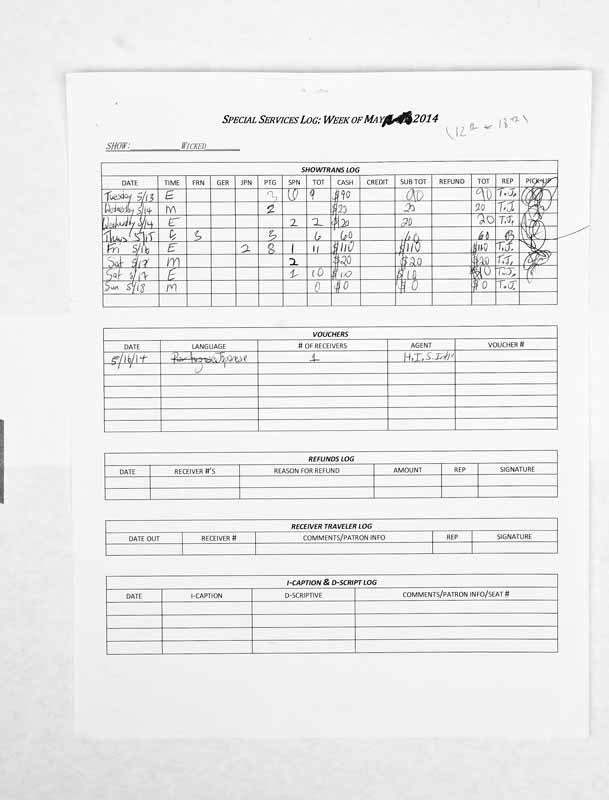 SPECIAL SERVICES LOG: WEEK OF MAY 2014
(12th to 18th)
SHOW: WICKED
SHOWTRANS LOG
DATE TIME FRN GER JPN PTG SPN TOT CASH CREDIT SUB TOT REFUND TOT REP PICK-UP
Tuesday 5/13 E 3 6 9 $90 90 90 T.J.
Wednesday 5/14 M 2 $20 20 20 T.J.
Wednesday 5/14 E 2 2 $20 20 20 T.J.
Thurs 5/15 E 3 3 6 60 60 60
Fri 5/16 E 2 8 1 11 $110 $110 $110 T.J.
Sat 5/17 M 2 $20 $20 $20 T.J.
Sat 5/17 E 1 10 $10 $10 $10 T.J.
Sun 5/18 M 0 $0 $0 $0 T.J.
VOUCHERS
DATE LANGUAGE # OF RECEIVERS AGENT VOUCHER #
5/16/14 1 H.I.S. Int'l
REFUNDS LOG
DATE RECEIVER #'S REASON FOR REFUND AMOUNT REP SIGNATURE
RECEIVER TRAVELER LOG
DATE OUT RECEIVER # COMMENTS/PATRON INFO REP SIGNATURE
I-CAPTION & D-SCRIPT LOG
DATE I-CAPTION D-SCRIPTIVE COMMENTS/PATRON INFO/SEAT #